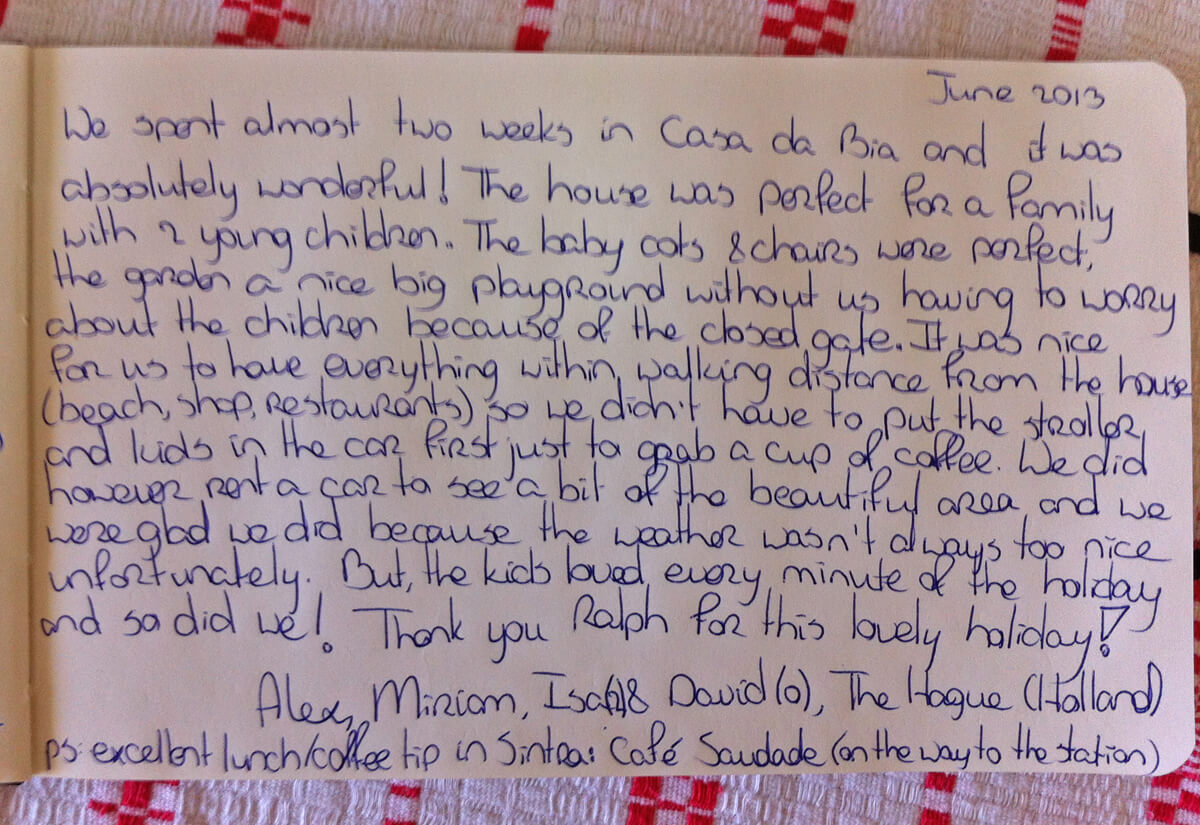 June 2013
We spent almost two weeks in Casa da Bia and it was
absolutely wonderful! The house was perfect for a family
with 2 young children. The baby cots & chairs were perfect,
the garden a nice big playground without us having to worry
about the children because of the closed gate. It was nice
for us to have everything within walking distance from the house
(beach, shop, restaurants) so we didn't have to put the stroller
and kids in the car first just to grab a cup of coffee. We did
however rent a car to see a bit of the beautiful area and we
were glad we did because the weather wasn't always too nice
unfortunately. But, the kids loved every minute of the holiday
and so did we! Thank you Ralph for this lovely holiday!
Alex, Miriam, Isa(2) & David (0), The Hague (Holland)
ps: excellent lunch/coffee tip in Sintra: Café Saudade (on the way to the station)